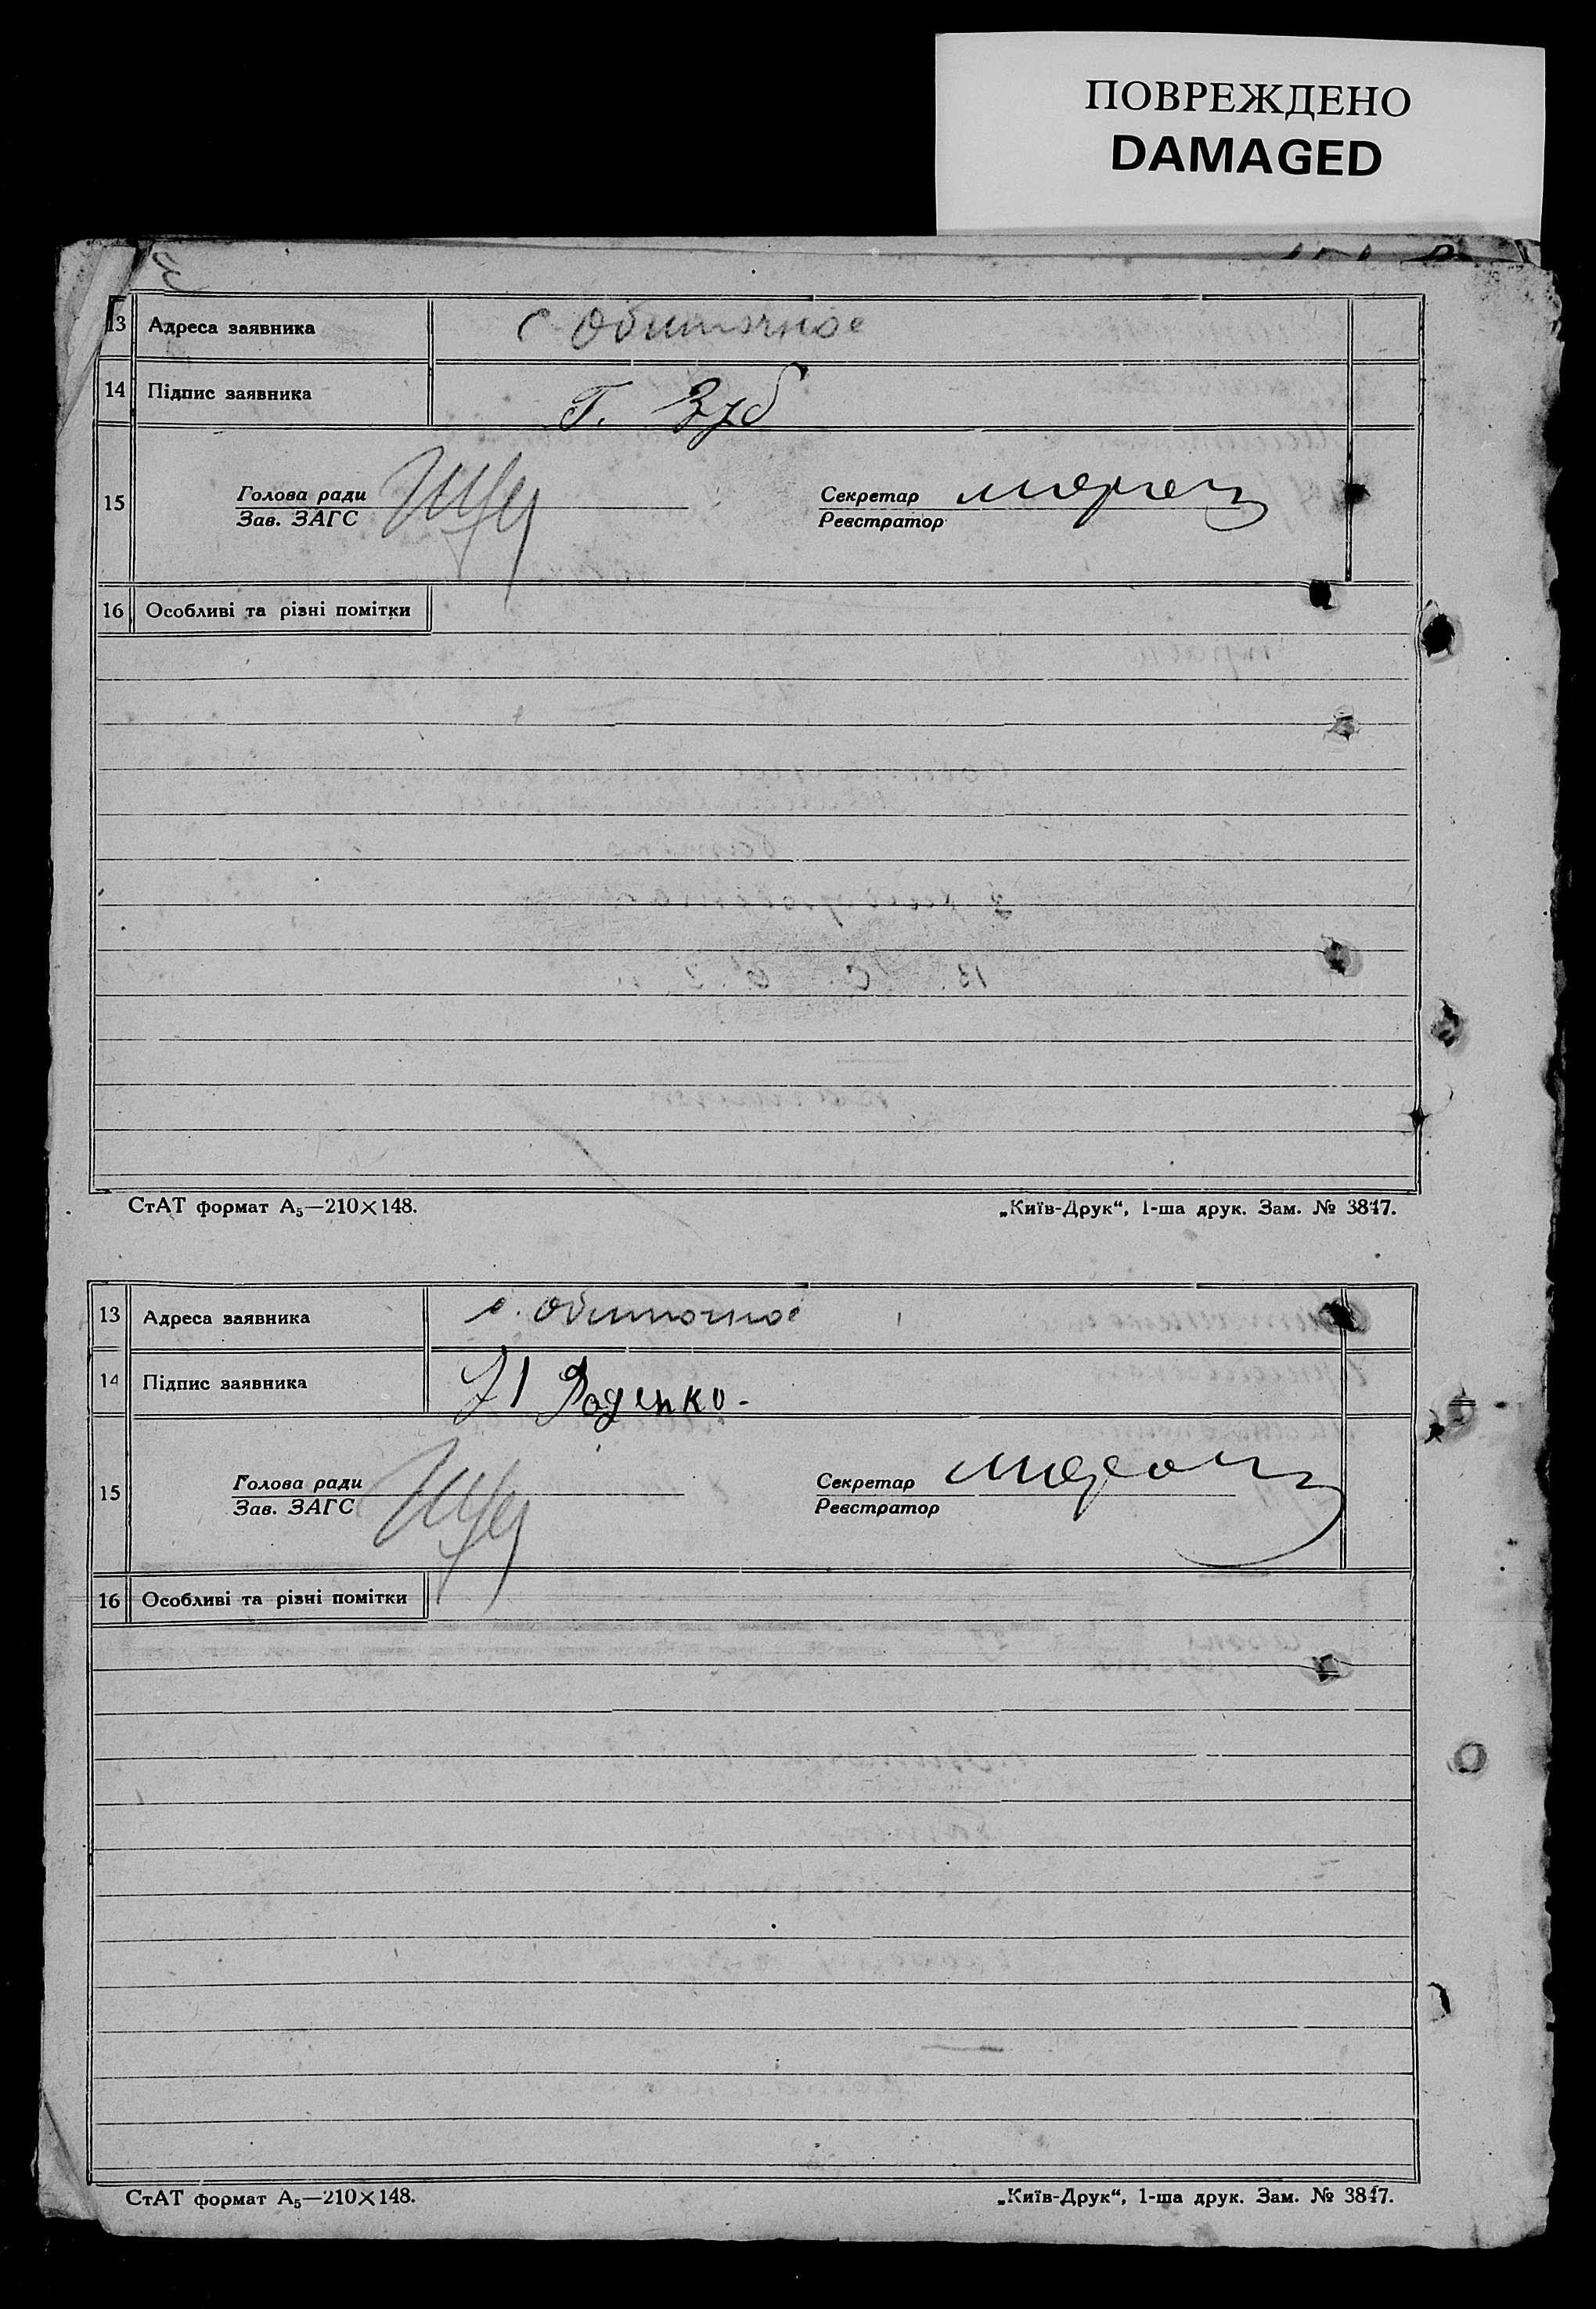 ПОВРЕЖДЕНО
DAMAGED
13 Адреса заявника с Обиточное
14 Підпис заявника Г. Зуб
15 Голова ради Секретар
Зав. ЗАГС Реєстратор
16 Особливі та різні помітки
СтАТ формат А₅—210×148. „Київ-Друк“, 1-ша друк. Зам. № 3847.
13 Адреса заявника с. Обиточное
14 Підпис заявника
15 Голова ради Секретар
Зав. ЗАГС Реєстратор
16 Особливі та різні помітки
СтАТ формат А₅—210×148. „Київ-Друк“, 1-ша друк. Зам. № 3847.